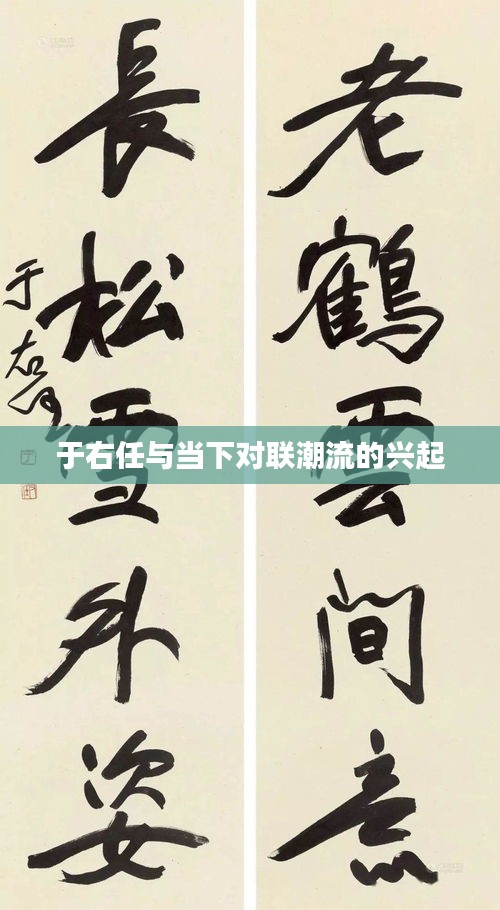 老鶴雲間意
長松雪外姿
于右任
于右任与当下对联潮流的兴起